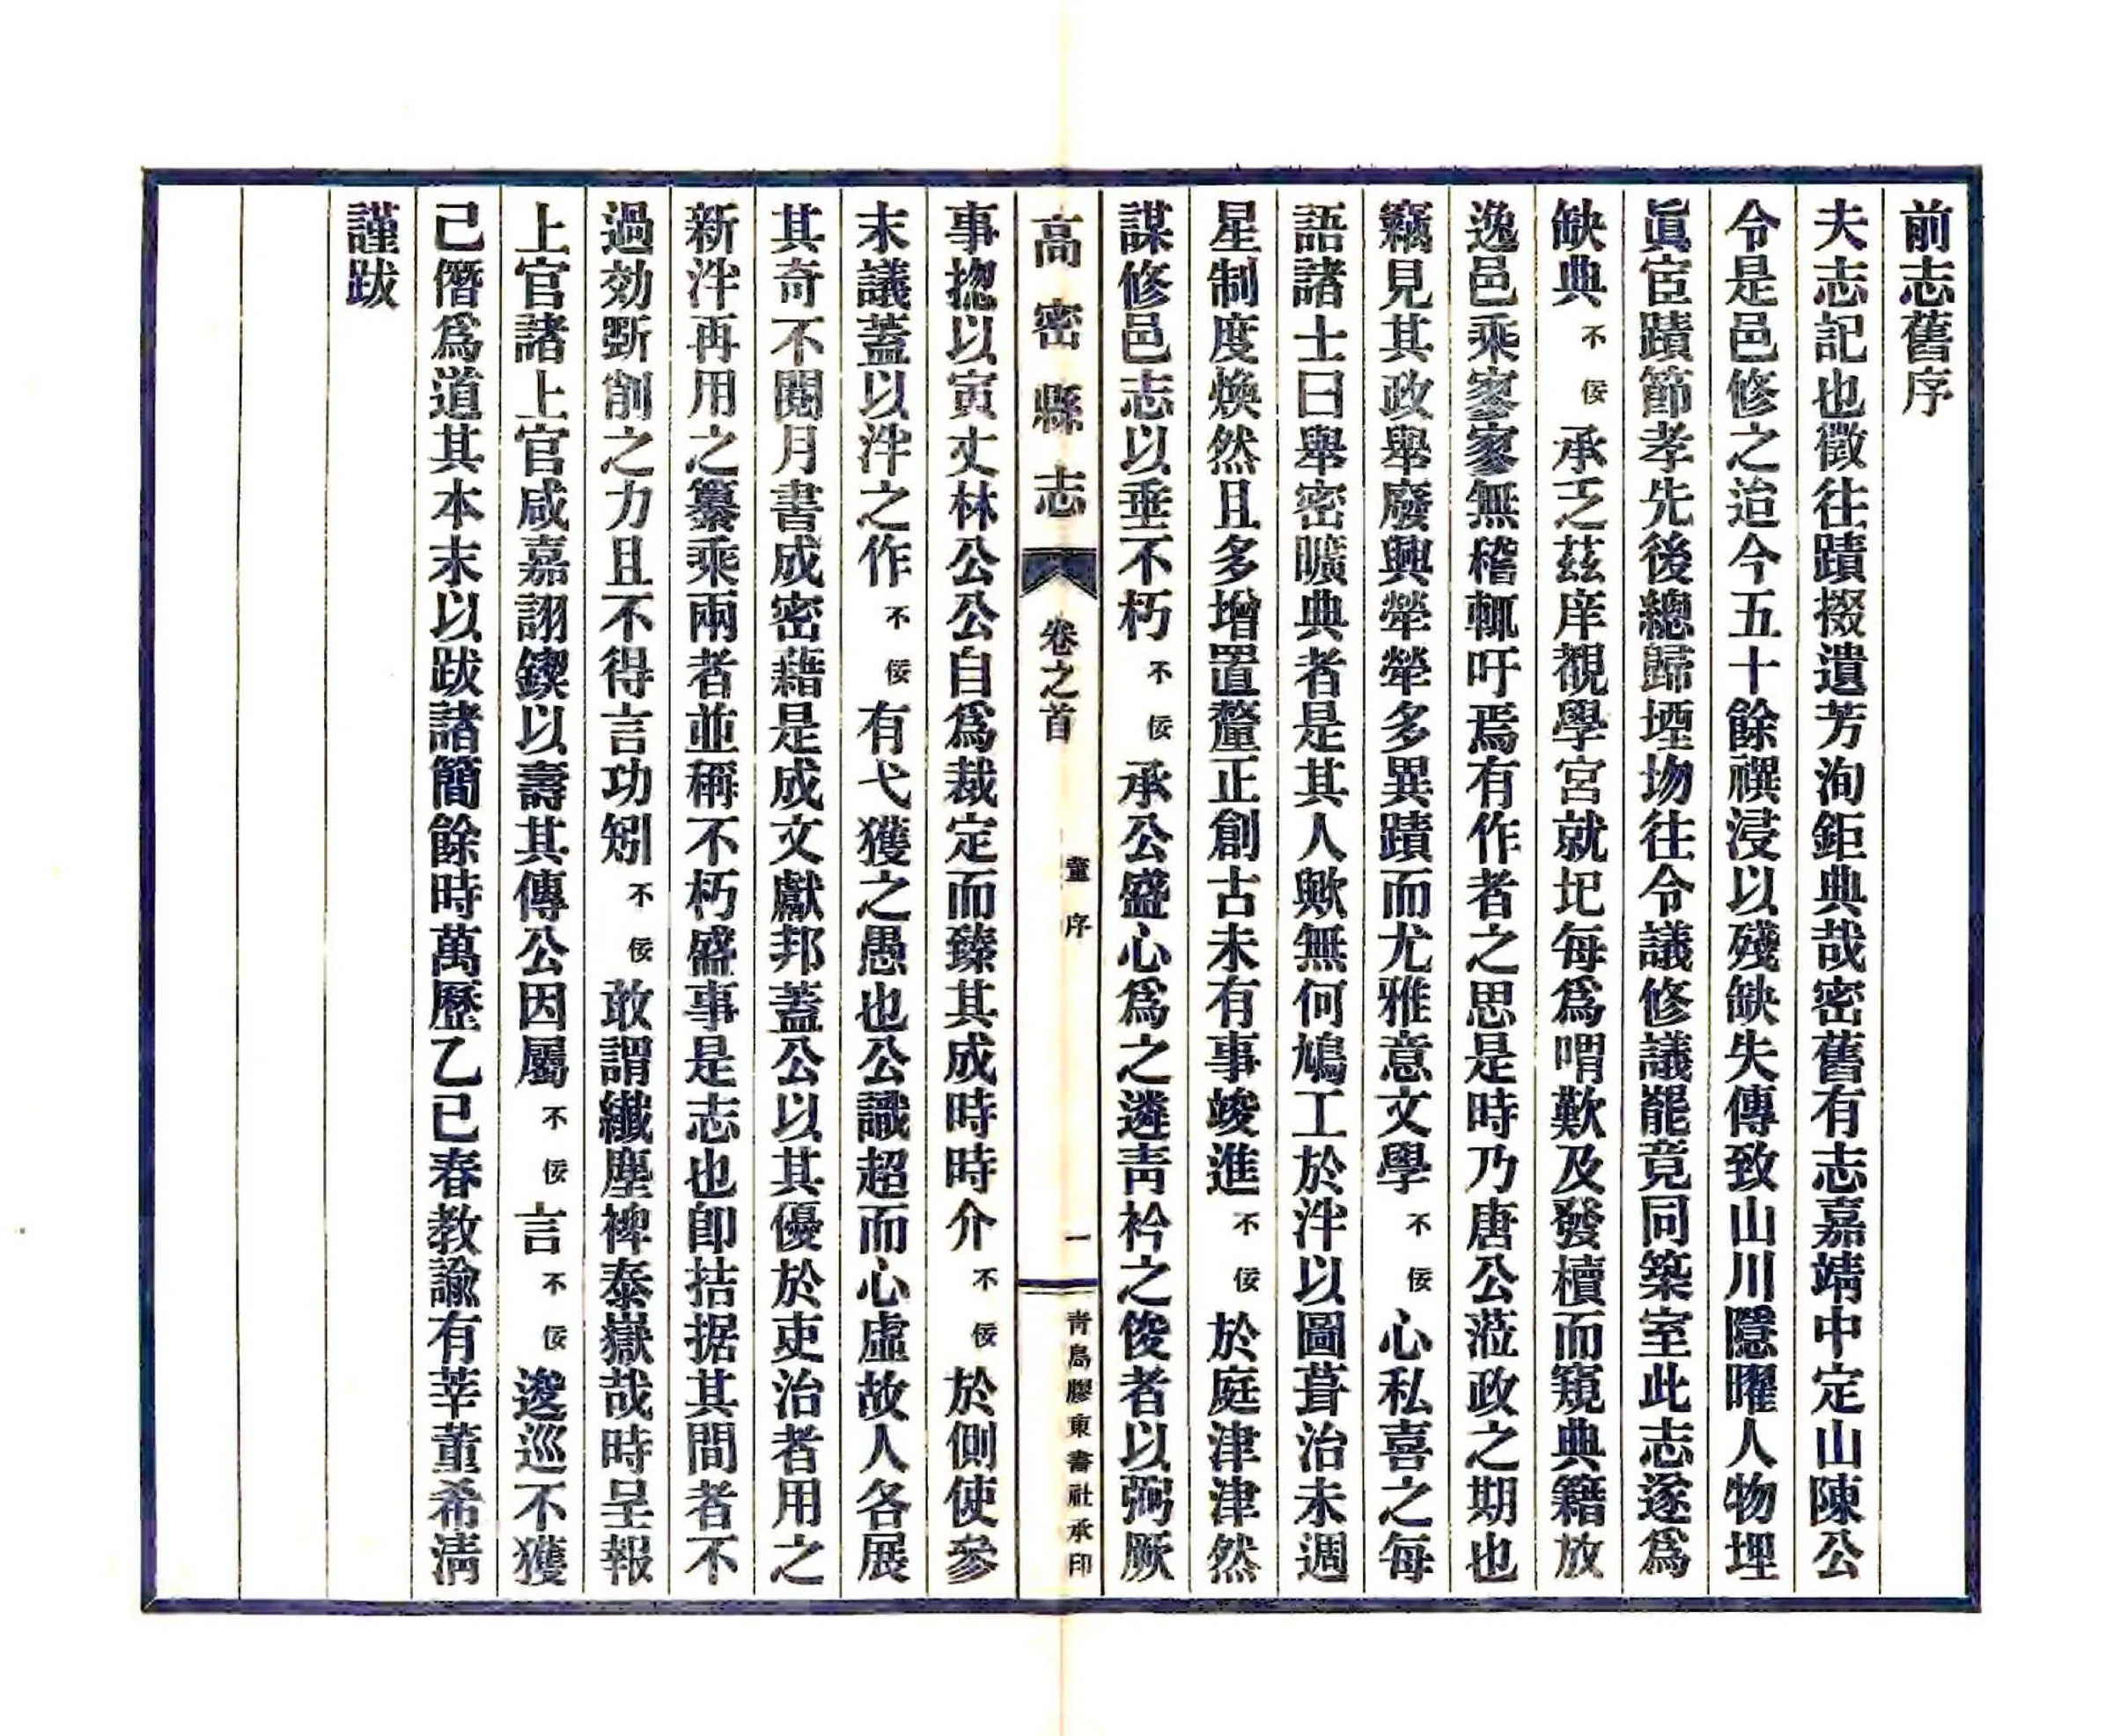 前志舊序
夫志記也徵往蹟掇遺芳洵鉅典哉密舊有志嘉靖中定山陳公
令是邑修之迨今五十餘禩浸以殘缺失傳致山川隱曜人物埋
眞宦蹟節孝先後總歸堙圽往令議修議罷竟同築室此志遂爲
缺典不佞承乏茲庠覩學宮就圮每爲喟歎及發櫝而窺典籍放
逸邑乘寥寥無稽輒吁焉有作者之思是時乃唐公蒞政之期也
竊見其政舉廢興犖犖多異蹟而尤雅意文學不佞心私喜之每
語諸士曰舉密曠典者是其人歟無何鳩工於泮以圖葺治未週
星制度煥然且多增置釐正創古未有事竣進不佞於庭津津然
謀修邑志以垂不朽不佞承公盛心爲之遴靑衿之俊者以弼厥
高密縣志 卷之首 董序 一 靑島膠東書社承印
事揔以寅丈林公公自爲裁定而臻其成時時介不佞於側使參
末議蓋以泮之作不佞有弋獲之愚也公識超而心虛故人各展
其奇不閱月書成密藉是成文獻邦蓋公以其優於吏治者用之
新泮再用之纂乘兩者並稱不朽盛事是志也卽拮据其間者不
過効斲削之力且不得言功矧不佞敢謂纖塵裨泰嶽哉時呈報
上官諸上官咸嘉詡鍥以壽其傳公因屬不佞言不佞逡巡不獲
已僭爲道其本末以跋諸簡餘時萬歷乙巳春教諭有莘董希淸
謹跋